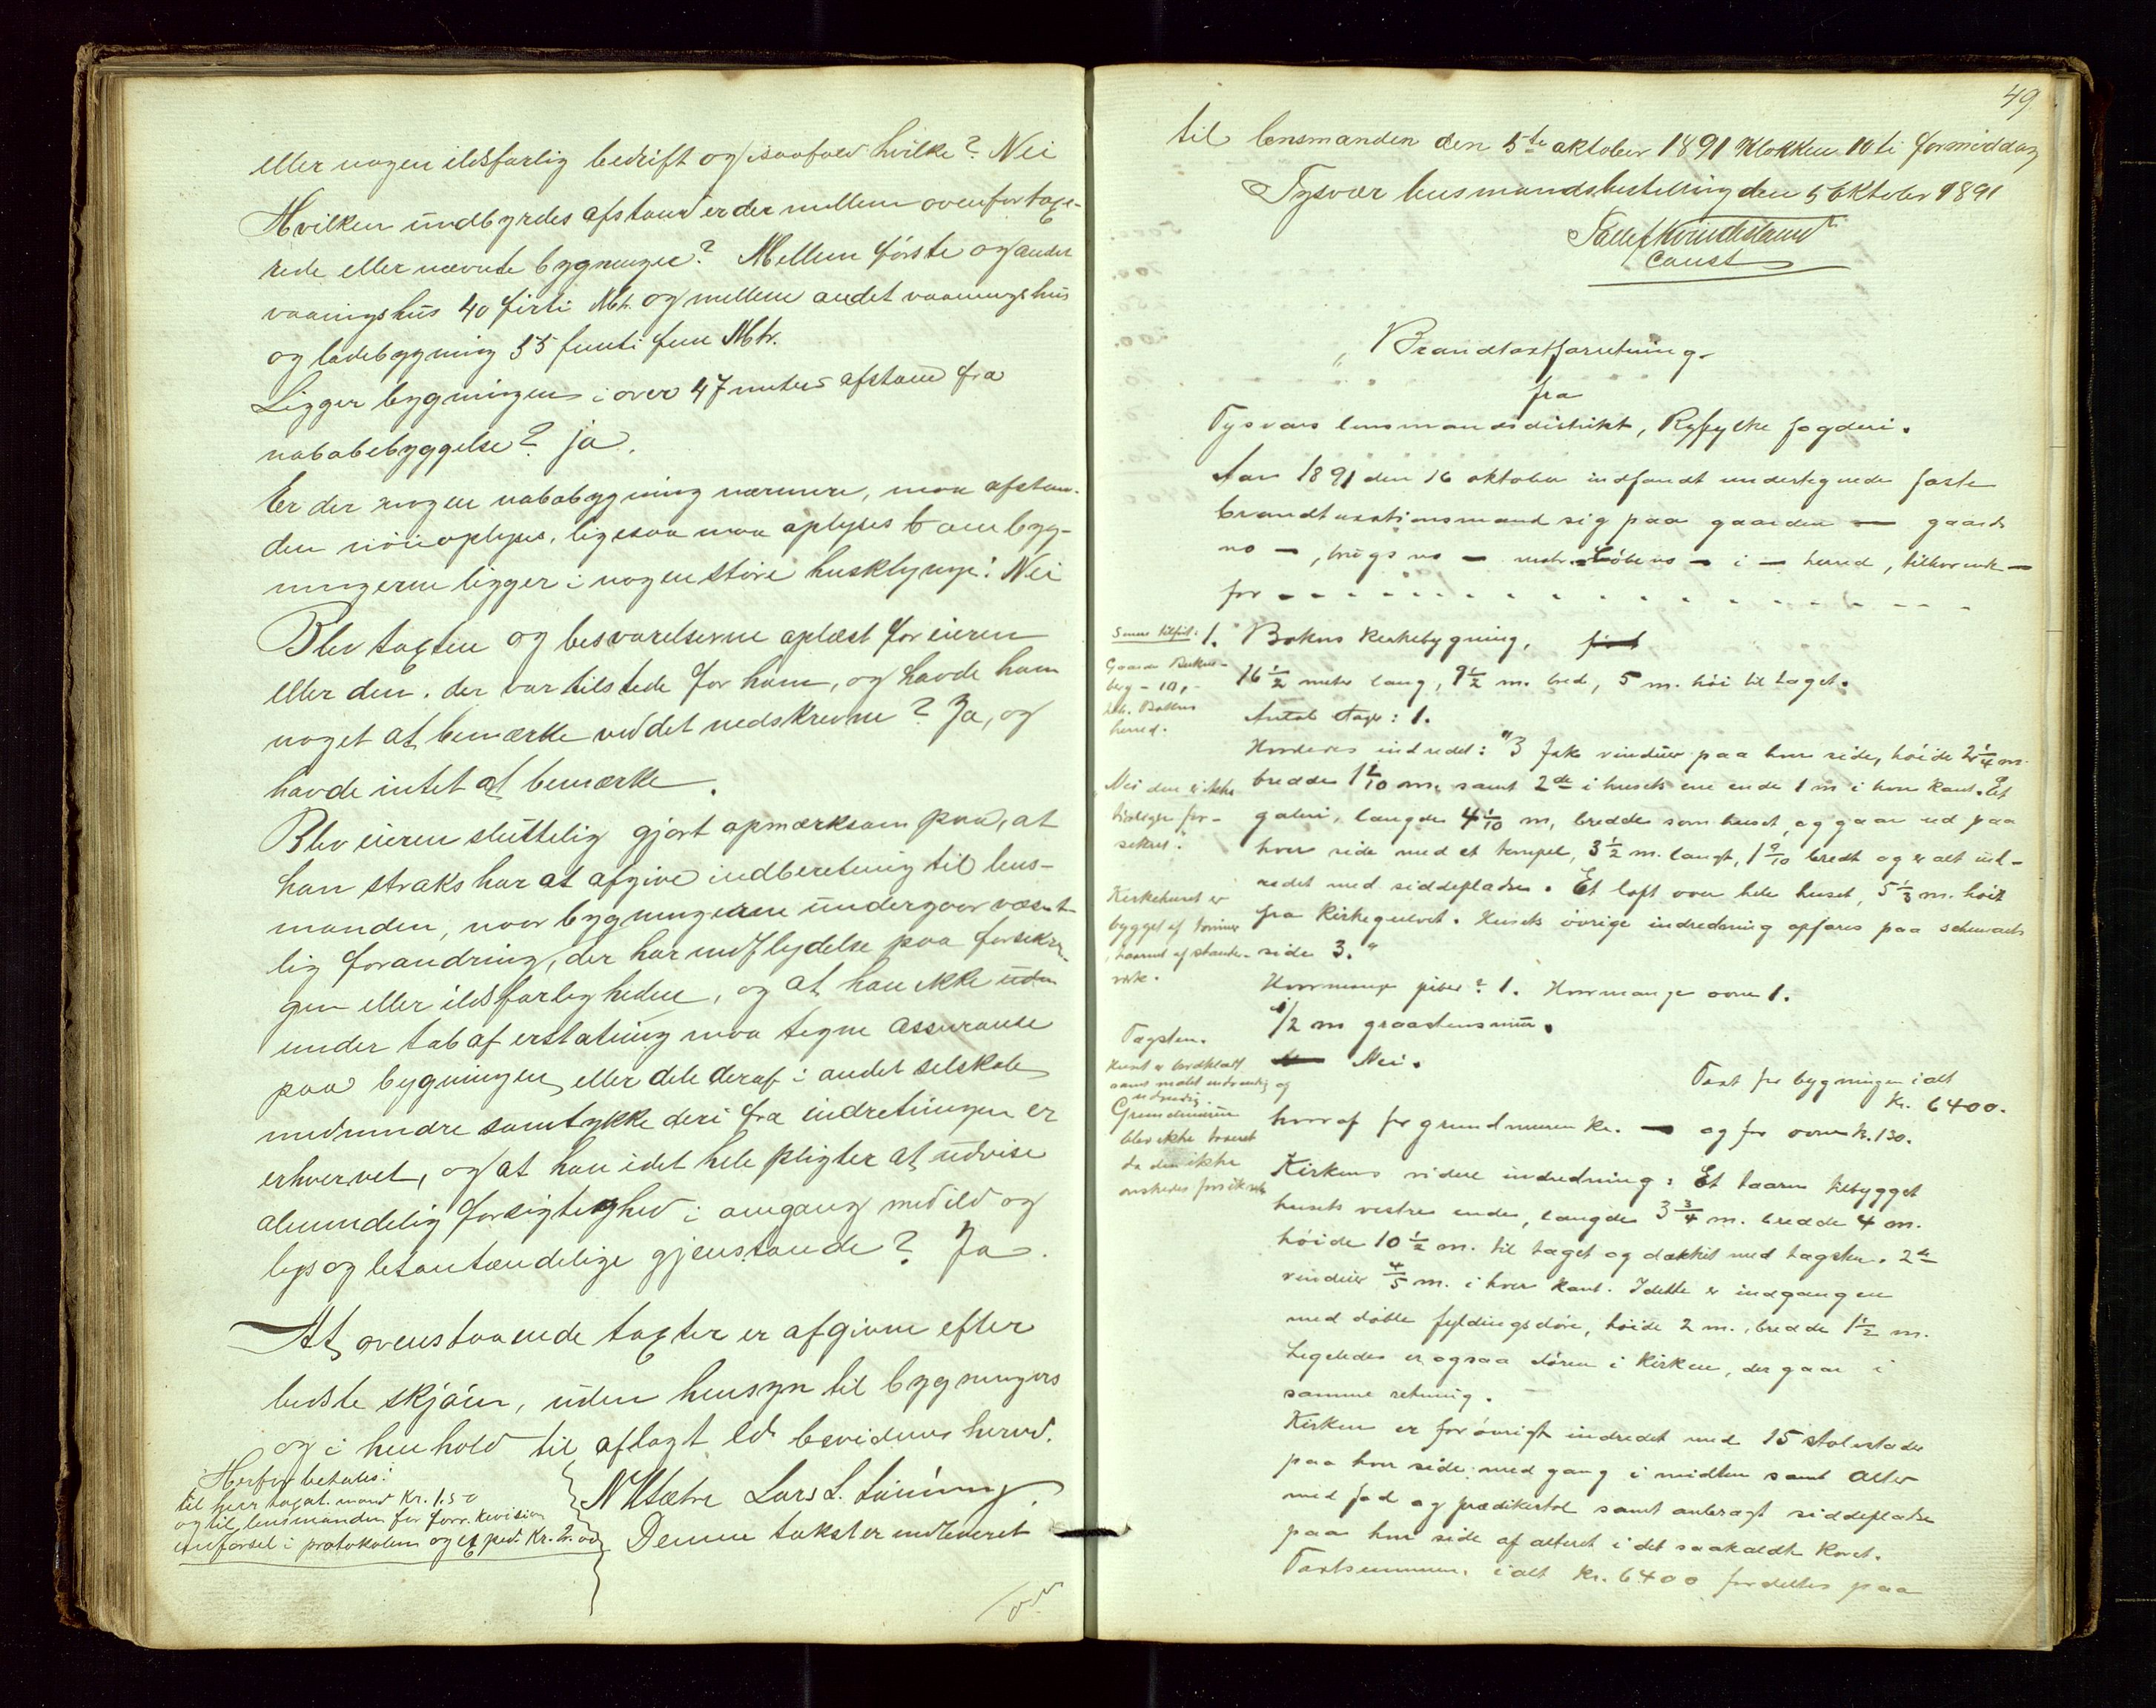 eller nogen ildsfarlig bedrift og isaafald hvilke? Nei
Hvilken indbyrdes afstand er der mellem ovenfor taxe-
rede eller nævnte bygninger? Mellem første og andet
vaaningshus 40 firti Mtr. og mellem andet vaaningshus
og ladebygning 55 femti fem Mtr.
Ligger bygningen i over 47 meters afstand fra
nabobebyggelse? ja.
Er der nogen nabobygning nærmere, maa afstan-
den nøie oplyses, ligesaa maa oplyses om byg-
ningerne ligger i nogen større husklynge: Nei
Blev taxten og besvarelserne oplæst for eieren
eller den, der var tilstede for ham, og havde han
noget at bemærke ved det nedskrevne? Ja, og
havde intet at bemærke.
Blev eieren sluttelig gjort opmærksom paa, at
han straks har at afgive indberetning til lens-
manden, naar bygningerne undergaar væsent-
lig forandring, der har indflydelse paa forsikrin-
gen eller ildsfarligheden, og at han ikke uden
under tab af erstatning maa tegne assurance
paa bygningen eller dele deraf i andet selskab
medmindre samtykke deri fra indretningen er
erhvervet, og at han i det hele pligter at udvise
almindelig forsigtighed i omgang med ild og
lys og letantændelige gjenstande? Ja.
At ovenstaaende taxter er afgivne efter
bedste skjøn, uden hensyn til bygningers
og i henhold til aflagt ed bevidnes herved.
Herfor betales:
til hver taxat. mand Kr. 1.50
og til lensmanden for forr. revision
indførsel i protokolen og exped. Kr. 2.00
Lars L.
Denne takst er indleveret
49.
til lensmanden den 5te oktober 1891 Klokken 10 ti formiddag
Tysvær lensmandsbestilling den 5 Oktober 1891
const
"Brandtaxtforretning
fra
Tysværs lensmandsdistrikt, Ryfylke fogderi.
Aar 1891 den 16 oktober indfandt undertegnede faste
brandtaxtionsmænd sig paa gaarden — gaards
no —, brugs no — matr. Løbeno — i — herred, tilhørende —
for - - - - - - - - - - - - - - - - -
Senere tilføiet:
Gaarden
berg - 10, -
i Bokns
herred.
1. Bokns Kirkebygning,
16 1/2 meter lang, 9 1/2 m. bred, 5 m. høi til taget.
Antal etager: 1.
Hvorledes indredet: "3 fake vinduer paa hver side, høide 2 1/4 m.
bredde 1 2/10 m, samt 2de i husets ene ende 1 m i hver kant. Et
galeri, længde 4 1/10 m, bredde som huset, og gaar ud paa
hver side med et tempel, 3 1/2 m. langt, 1 9/10 bredt og er alt ind-
redet med siddepladse. Et loft over hele huset, 5 1/3 m. høit
fra Kirkegulvet. Husets øvrige indredning opføres paa schemaets
side 3."
Nei den er ikke
tidligere for-
sikret.
Kirkehuset er
bygget af tømmer
, taarnet af stænder-
værk.
Hvormange piber? 1. Hvormange ovne 1.
1/2 m graastensmur.
Tagsten.
Huset er bordklædt
samt malet indvendig og
udvendig.
Nei.
Taxt for bygningen ialt
Kr. 6400.
Grundmuren
blev ikke taxeret
da den ikke
ønskedes forsikret
hvoraf for grundmuren Kr. — og for ovne Kr. 130.
Kirkens videre indredning: Et taarn tilbygget
husets vestre ende, længde 3 3/4 m. bredde 4 m.
høide 10 1/2 m. til taget og dækket med tagsten. 2de
vinduer 4/5 m. i hver kant. I dette er indgangen
med doble fyldingsdøre, høide 2 m., bredde 1 1/2 m.
Ligeledes er ogsaa døren i Kirken, der gaar i
samme retning.
Kirken er forøvrigt indredet med 15 stolestader
paa hver side med gang i midten samt alter
med fod og prædikestol samt anbragt siddepladse
paa hver side af alteret i det saakaldte Koret.
Taxtsummen ialt Kr. 6400 fordeltes paa